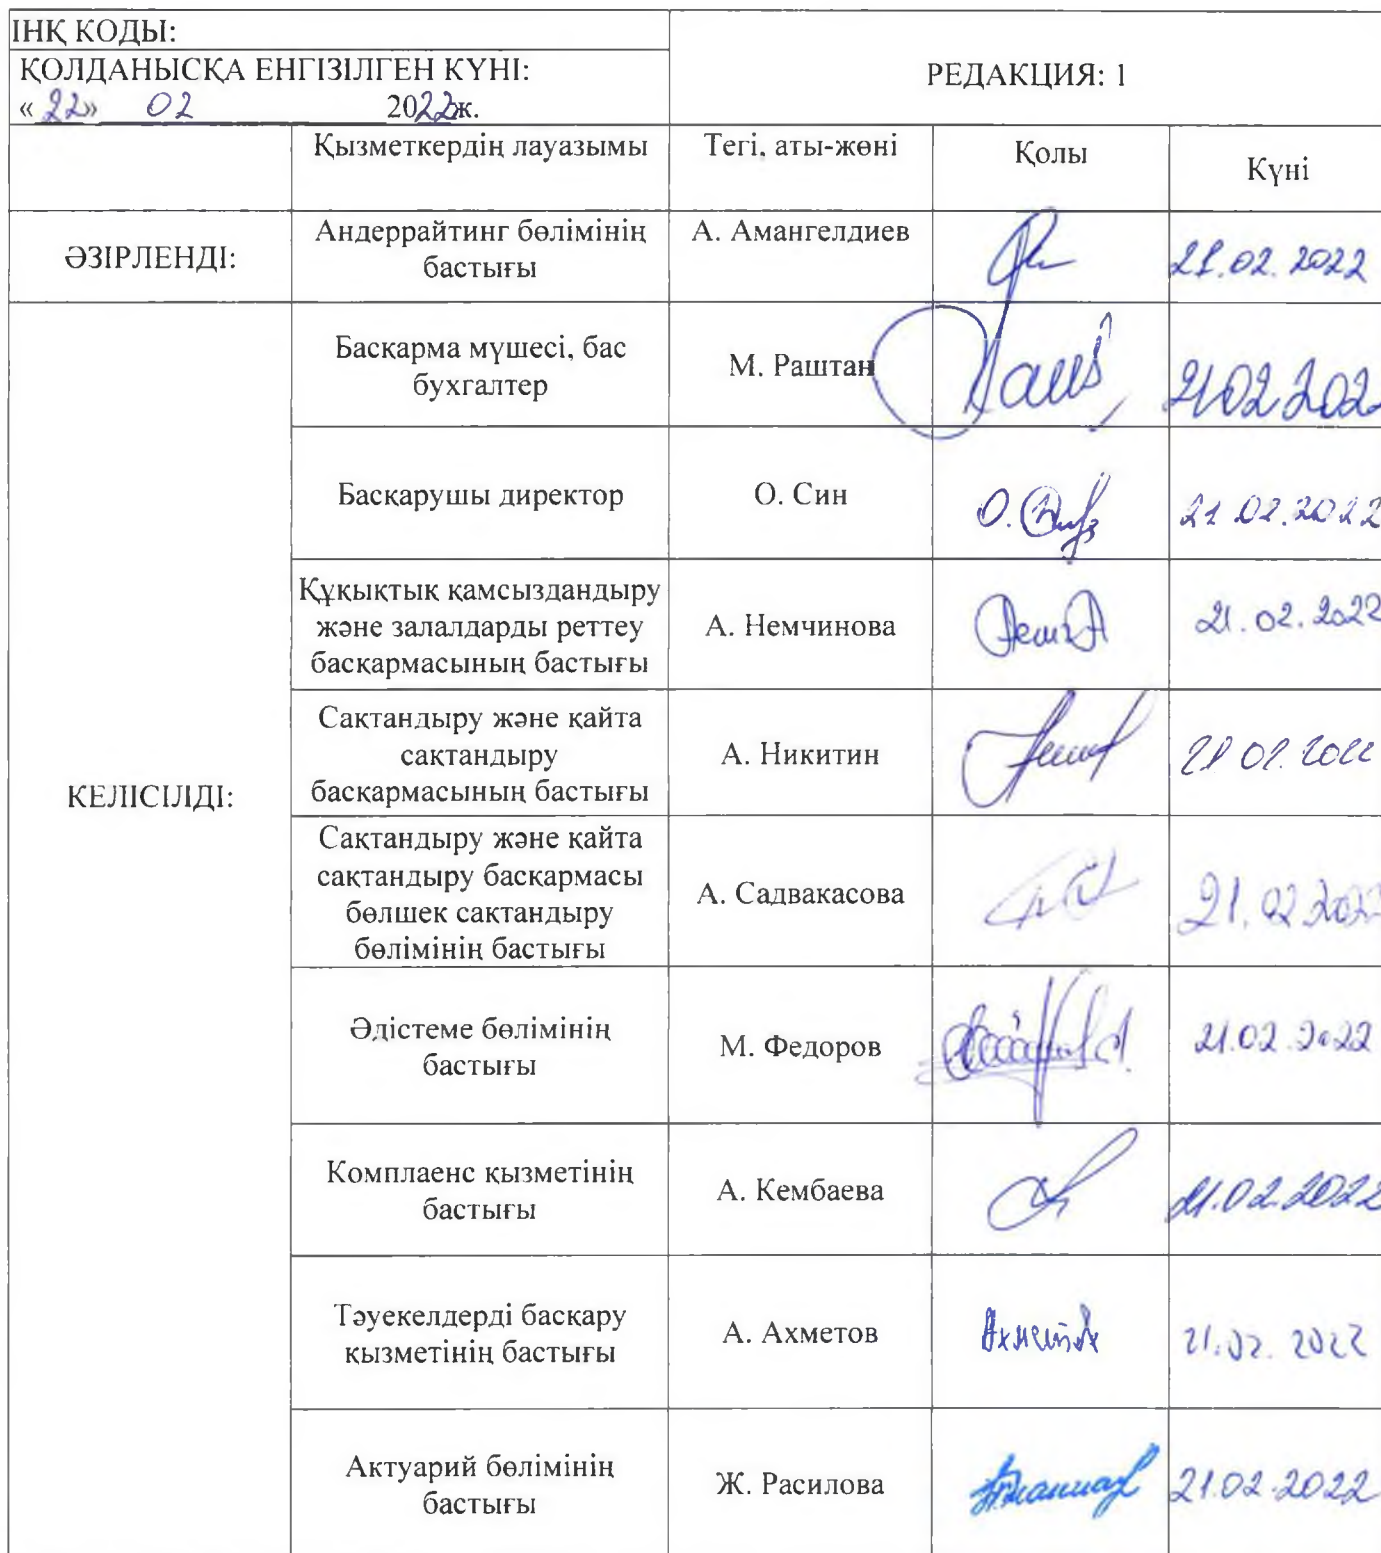 ІНҚ КОДЫ:
ҚОЛДАНЫСҚА ЕНГІЗІЛГЕН КҮНІ:
«22» 02 2022ж.
РЕДАКЦИЯ: 1
Қызметкердің лауазымы
Тегі, аты-жөні
Қолы
Күні
ӘЗІРЛЕНДІ:
Андеррайтинг бөлімінің
бастығы
А. Амангелдиев
21.02.2022
КЕЛІСІЛДІ:
Басқарма мүшесі, бас
бухгалтер
М. Раштан
21.02.2022
Басқарушы директор
О. Син
21.02.2022
Құқықтық қамсыздандыру
және залалдарды реттеу
басқармасының бастығы
А. Немчинова
21.02.2022
Сақтандыру және қайта
сақтандыру
басқармасының бастығы
А. Никитин
21 02. 2022
Сақтандыру және қайта
сақтандыру басқармасы
бөлшек сақтандыру
бөлімінің бастығы
А. Садвакасова
21.02.2022
Әдістеме бөлімінің
бастығы
М. Федоров
21.02.2022
Комплаенс қызметінің
бастығы
А. Кембаева
21.02.2022
Тәуекелдерді басқару
қызметінің бастығы
А. Ахметов
21.02.2022
Актуарий бөлімінің
бастығы
Ж. Расилова
21.02.2022